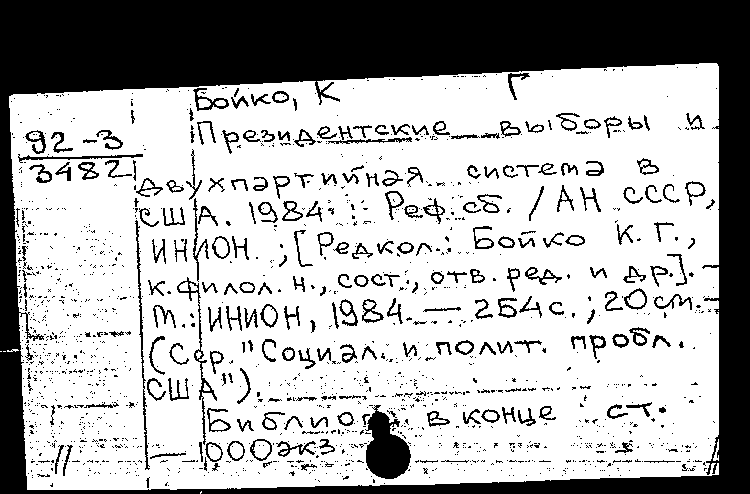 Бойко, К Г
92-3
Президентские выборы и
3482
двухпартийная система в
США. 1984 : Реф. сб. / АН СССР,
ИНИОН ; [Редкол.: Бойко К. Г.,
к. филол. н., сост., отв. ред. и др.]. —
М.: ИНИОН, 1984. — 254 с. ; 20 см. —
(Сер. "Социал. и полит. пробл.
США").
Библиогр. в конце ст.
— 1000 экз.